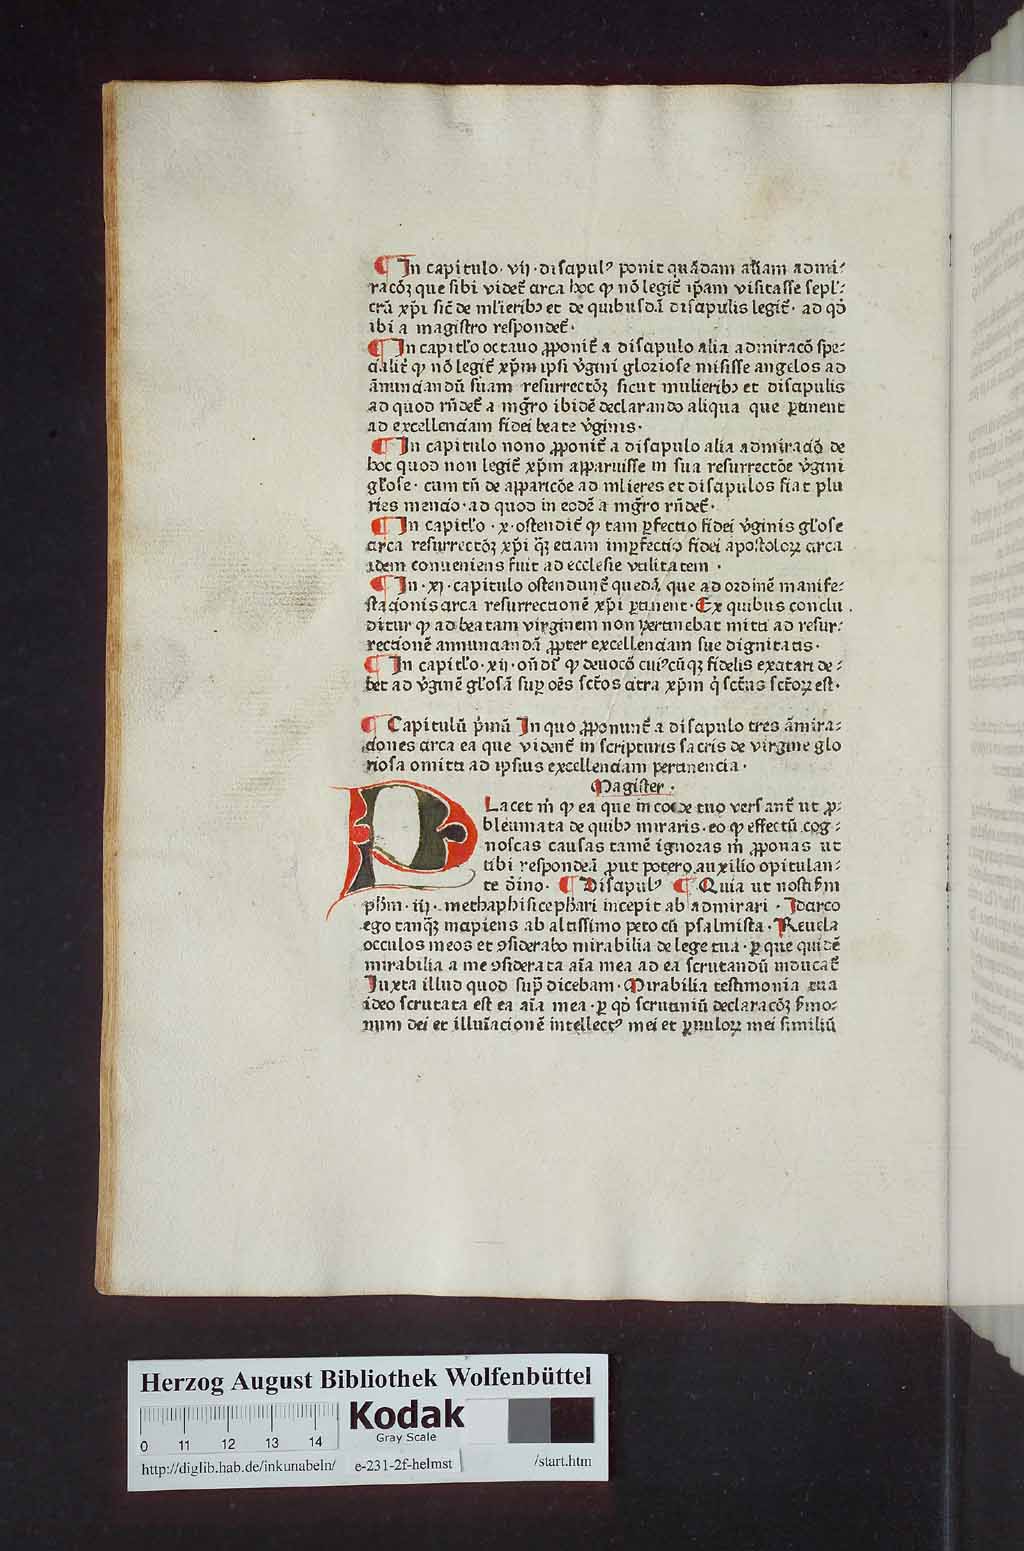 ¶ In capitulo · vij · discipulꝰ ponit quãdam aliam admi⸗
racõꝫ que sibi videt̃ circa hoc ꝙ nõ legit̃ ip̃am visitasse sepl̃⸗
crũ xp̃i sic̃ de ml̃ieribꝫ et de quibusdã discipulis legit̃ · ad qð
ibi a magistro respondet̃ ·
¶ In capitl̃o octauo ꝓponit̃ a discipulo alia admiracõ spe⸗
cialit̃ ꝙ nõ legit̃ xp̃m ipsi v̓gini gloriose misisse angelos ad
ãnunciandũ suam resurrectõꝫ sicut mulieribꝫ et discipulis
ad quod rñdet̃ a mgr̃o ibidẽ declarando aliqua que ꝑtinent
ad excellenciam fidei beate v̓ginis ·
¶ In capitulo nono ꝓponit̃ a discipulo alia admiracio de
hoc quod non legit̃ xp̃m apparuisse in sua resurrectõe v̓gini
gl̃ose · cum tñ de apparicõe ad ml̃ieres et discipulos fiat plu
ries mencio · ad quod in eodẽ a mgr̃o rñdet̃ ·
¶ In capitl̃o · x · ostendit̃ ꝙ tam ꝑfectio fidei v̓ginis gl̃ose
circa resurrectõꝫ xp̃i q̃ꝫ etiam imꝑfectio fidei apostoloꝝ circa
idem conueniens fuit ad ecclesie vtilitatem ·
¶ In · xj · capitulo ostendunt̃ quedã que ad ordinẽ manife⸗
stacionis circa resurrectionẽ xp̃i ꝑtinent · Ex quibus conclu
ditur ꝙ ad beatam virginem non pertinebat mitti ad resur⸗
rectionẽ annunciandã ꝓpter excellenciam sue dignitatis ·
¶ In capitl̃o · xij · oñdit̃ ꝙ deuocõ cuiꝰcũqꝫ fidelis excitari de⸗
bet ad v̓ginẽ gl̃osã suꝑ oẽs sct̃os citra xp̃m q̓ sct̃us sct̃oꝝ est ·
¶ Capitulũ p̓mũ In quo ꝓponunt̃ a discipulo tres ãmira⸗
ciones circa ea que vident̃ in scripturis sacris de virgine glo
riosa omitti ad ipsius excellenciam pertinencia ·
Magister ·
PLacet m̓ ꝙ ea que in corde tuo versant̃ ut ꝓ⸗
bleumata de quibꝫ miraris · eo ꝙ effectũ cog⸗
noscas causas tamẽ ignoras m̓ ꝓponas ut
tibi respondeã ꝓut potero auxilio opitulan⸗
te dñino · ¶ Discipulꝰ ¶ Quia ut nosti s̃m
ph̃m · iij · methaphisice ph̃ari incepit ab admirari · Idcirco
ego tanq̃ꝫ incipiens ab altissimo peto cũ psalmista · Reuela
occulos meos et ꝯsiderabo mirabilia de lege tua · ꝑ que quidẽ
mirabilia a me ꝯsiderata aĩa mea ad ea scrutandũ inducat̃
Iuxta illud quod sup̃ dicebam · Mirabilia testimonia tua
ideo scrutata est ea aĩa mea · ꝑ qð scrutiniũ declaracõꝫ s̓mo⸗
num dei et illuĩacionẽ intellectꝰ mei et ꝑuuloꝝ mei similiũ
Herzog August Bibliothek Wolfenbüttel
Kodak
Gray Scale
0 11 12 13 14
http://diglib.hab.de/inkunabeln/ e-231-2f-helmst /start.htm